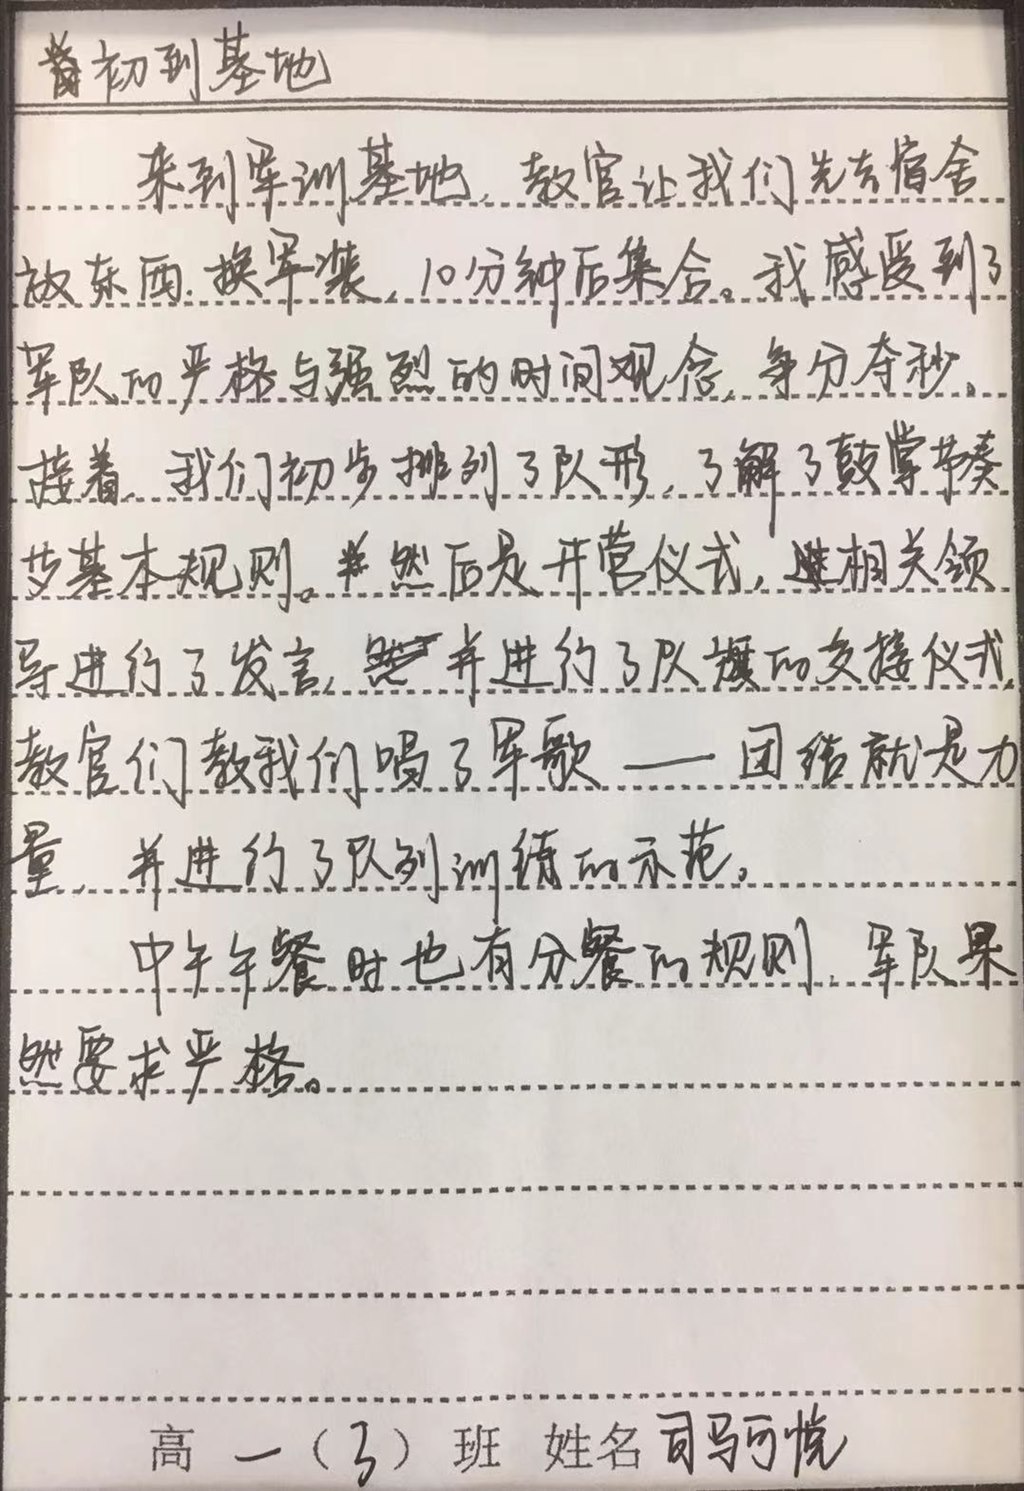 初到基地
来到军训基地，教官让我们先去宿舍
放东西、换军装，10分钟后集合。我感受到了
军队的严格与强烈的时间观念，争分夺秒。
接着，我们初步排列了队形，了解了鼓掌节奏
等基本规则。然后是开营仪式，相关领
导进行了发言，并进行了队旗的交接仪式，
教官们教我们唱了军歌——团结就是力
量，并进行了队列训练的示范。
中午午餐时也有分餐的规则，军队果
然要求严格。
高一（3）班 姓名司马可悦